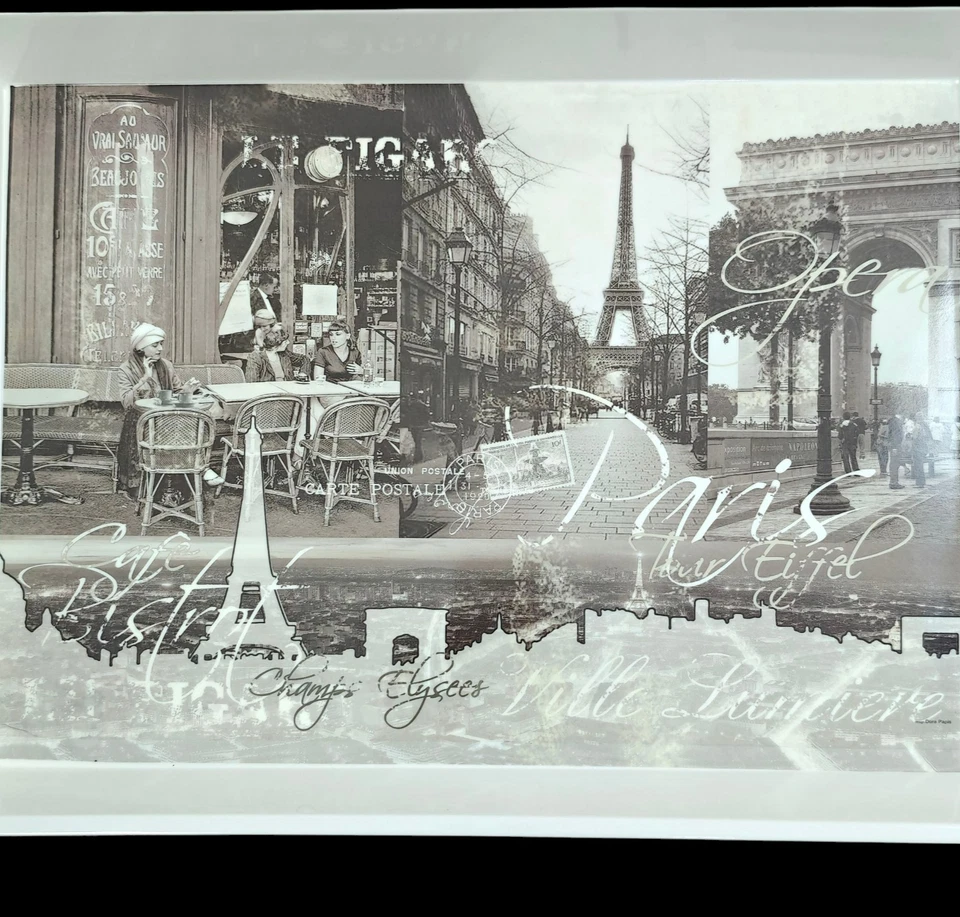 AU
VRAI SAUMUR
BEAUJOLAIS
CAFÉ
10
AVEC PETIT VERRE
15
LE FIGARO
Opera
UNION POSTALE
CARTE POSTALE
PARIS
1920
PARIS
Paris
Tour Eiffel
NAPOLEON
Café
Bistrot
Champs Elysees
Ville Lumiere